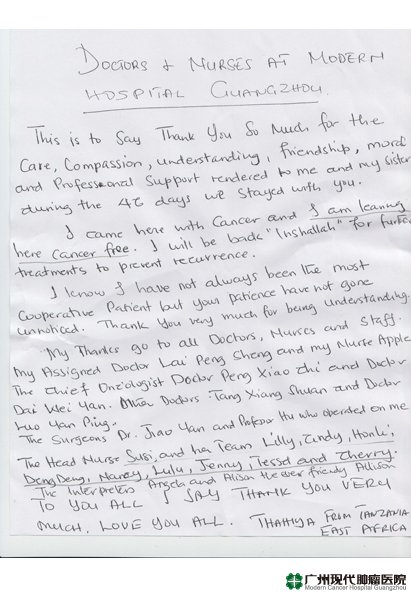 DOCTORS & NURSES AT MODERN
HOSPITAL GUANGZHOU.
This is to Say Thank You So Much for the
Care, Compassion, understanding, friendship, moral
and Professional Support rendered to me and my sister
during the 46 days we Stayed with you.
I came here with Cancer and I am leaving
here Cancer free. I will be back "Inshallah" for further
treatments to prevent recurrence.
I know I have not always been the most
Cooperative Patient but your patience have not gone
unnoticed. Thank You very much for being understanding.
My Thanks go to all Doctors, Nurses and Staff.
My Assigned Doctor Lai Peng Sheng and my Nurse Apple
The Chief Oncologist Doctor Peng Xiao Chi and Doctor
Dai Wei Yan. Doctors: Tang Xiang Shuan and Doctor
Luo Yan Ping.
The Surgeons Dr. Jiao Yan and Professor Hu who operated on me
The Head Nurse Susi, and her Team Lilly, Cindy, Honki,
DengDeng, Nancy, Lulu, Jenny, Tessel and Cherry.
The Interpreters Angela and Alison the ever friendy Allison
TO YOU ALL I SAY THANK YOU VERY
MUCH, LOVE YOU ALL. THAHIYA FROM TANZANIA
EAST AFRICA
广州现代肿瘤医院
Modern Cancer Hospital Guangzhou